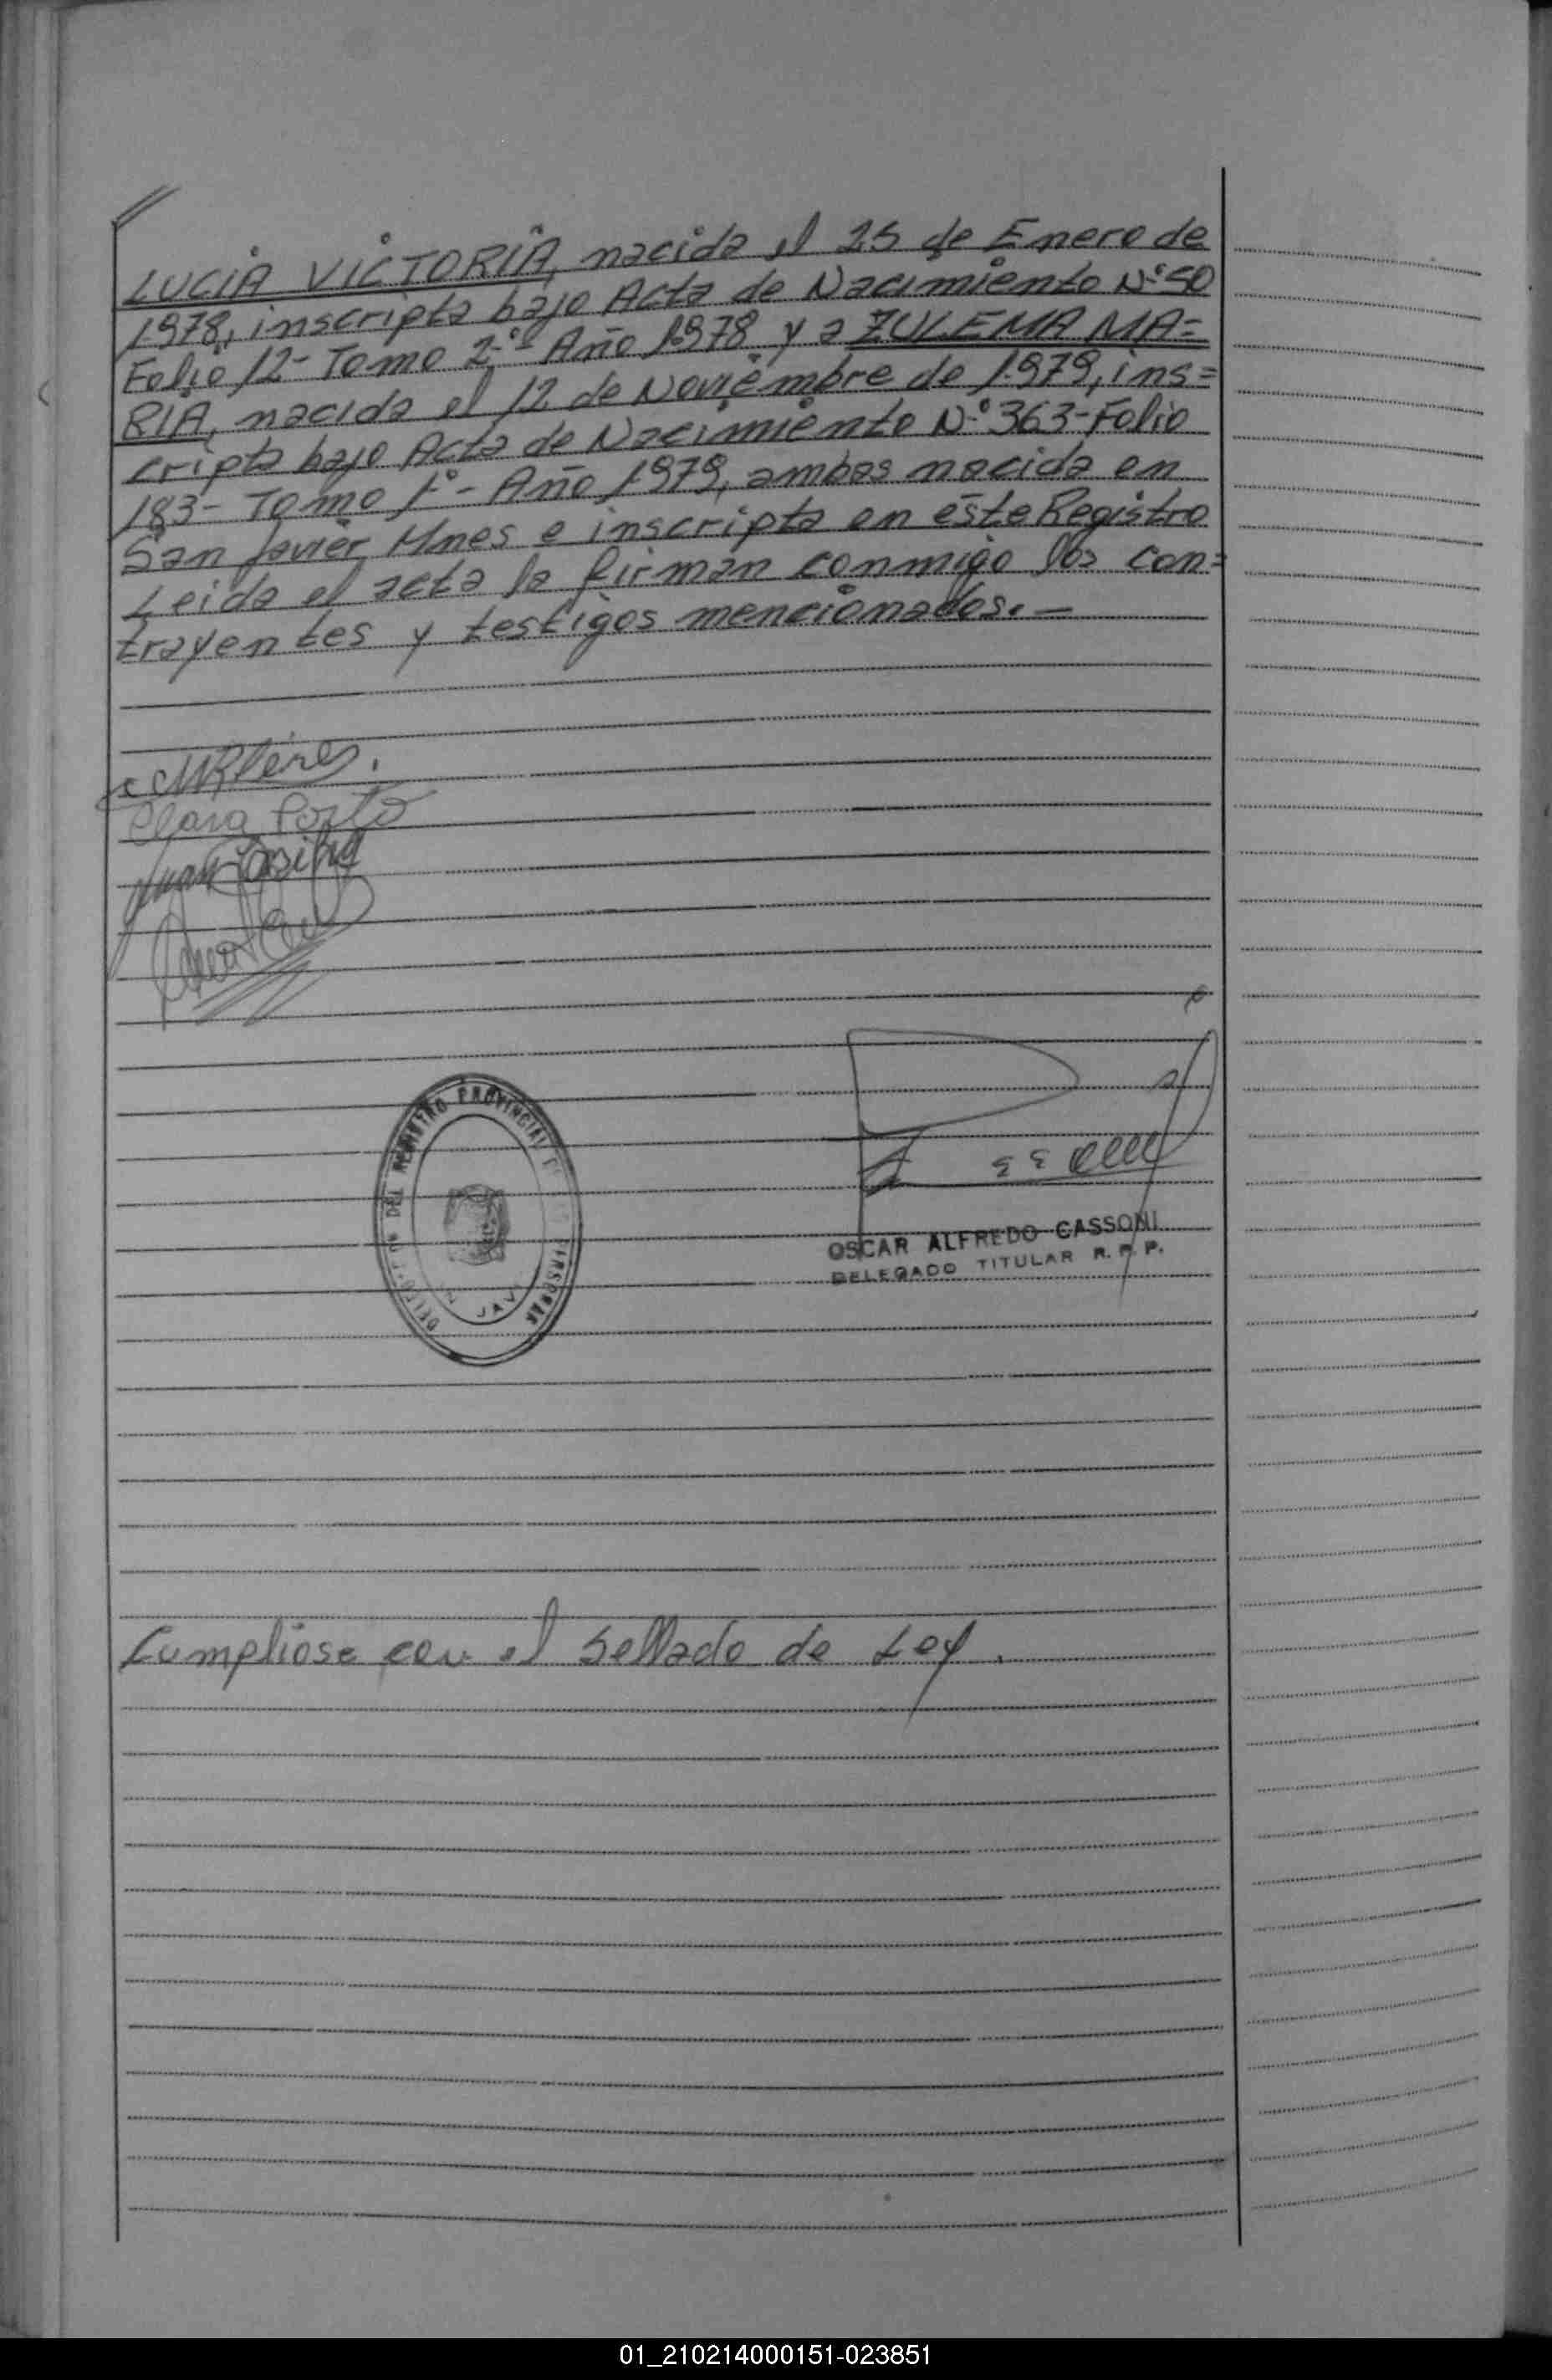 LUCIA VICTORIA, nacida el 25 de Enero de
1978, inscripta bajo Acta de Nacimiento Nº 50
Folio 12- Tomo 2º Año 1978 y a ZULEMA MA=
RIA, nacida el 12 de Noviembre de 1979, ins=
cripta bajo Acta de Nacimiento Nº 363-Folio
183- Tomo 1º- Año 1979, ambas nacida en
San Javier Mnes e inscripta en éste Registro
Leida el acta la firman conmigo los con=
trayentes y testigos mencionados.—
Clara Porto
Juan
REGISTRO PROVINCIAL
DEL
PERSONAS
JAVI
OSCAR ALFREDO CASSONI
DELEGADO TITULAR R. P. P.
Cumpliose con el Sellado de Ley.
01_210214000151-023851